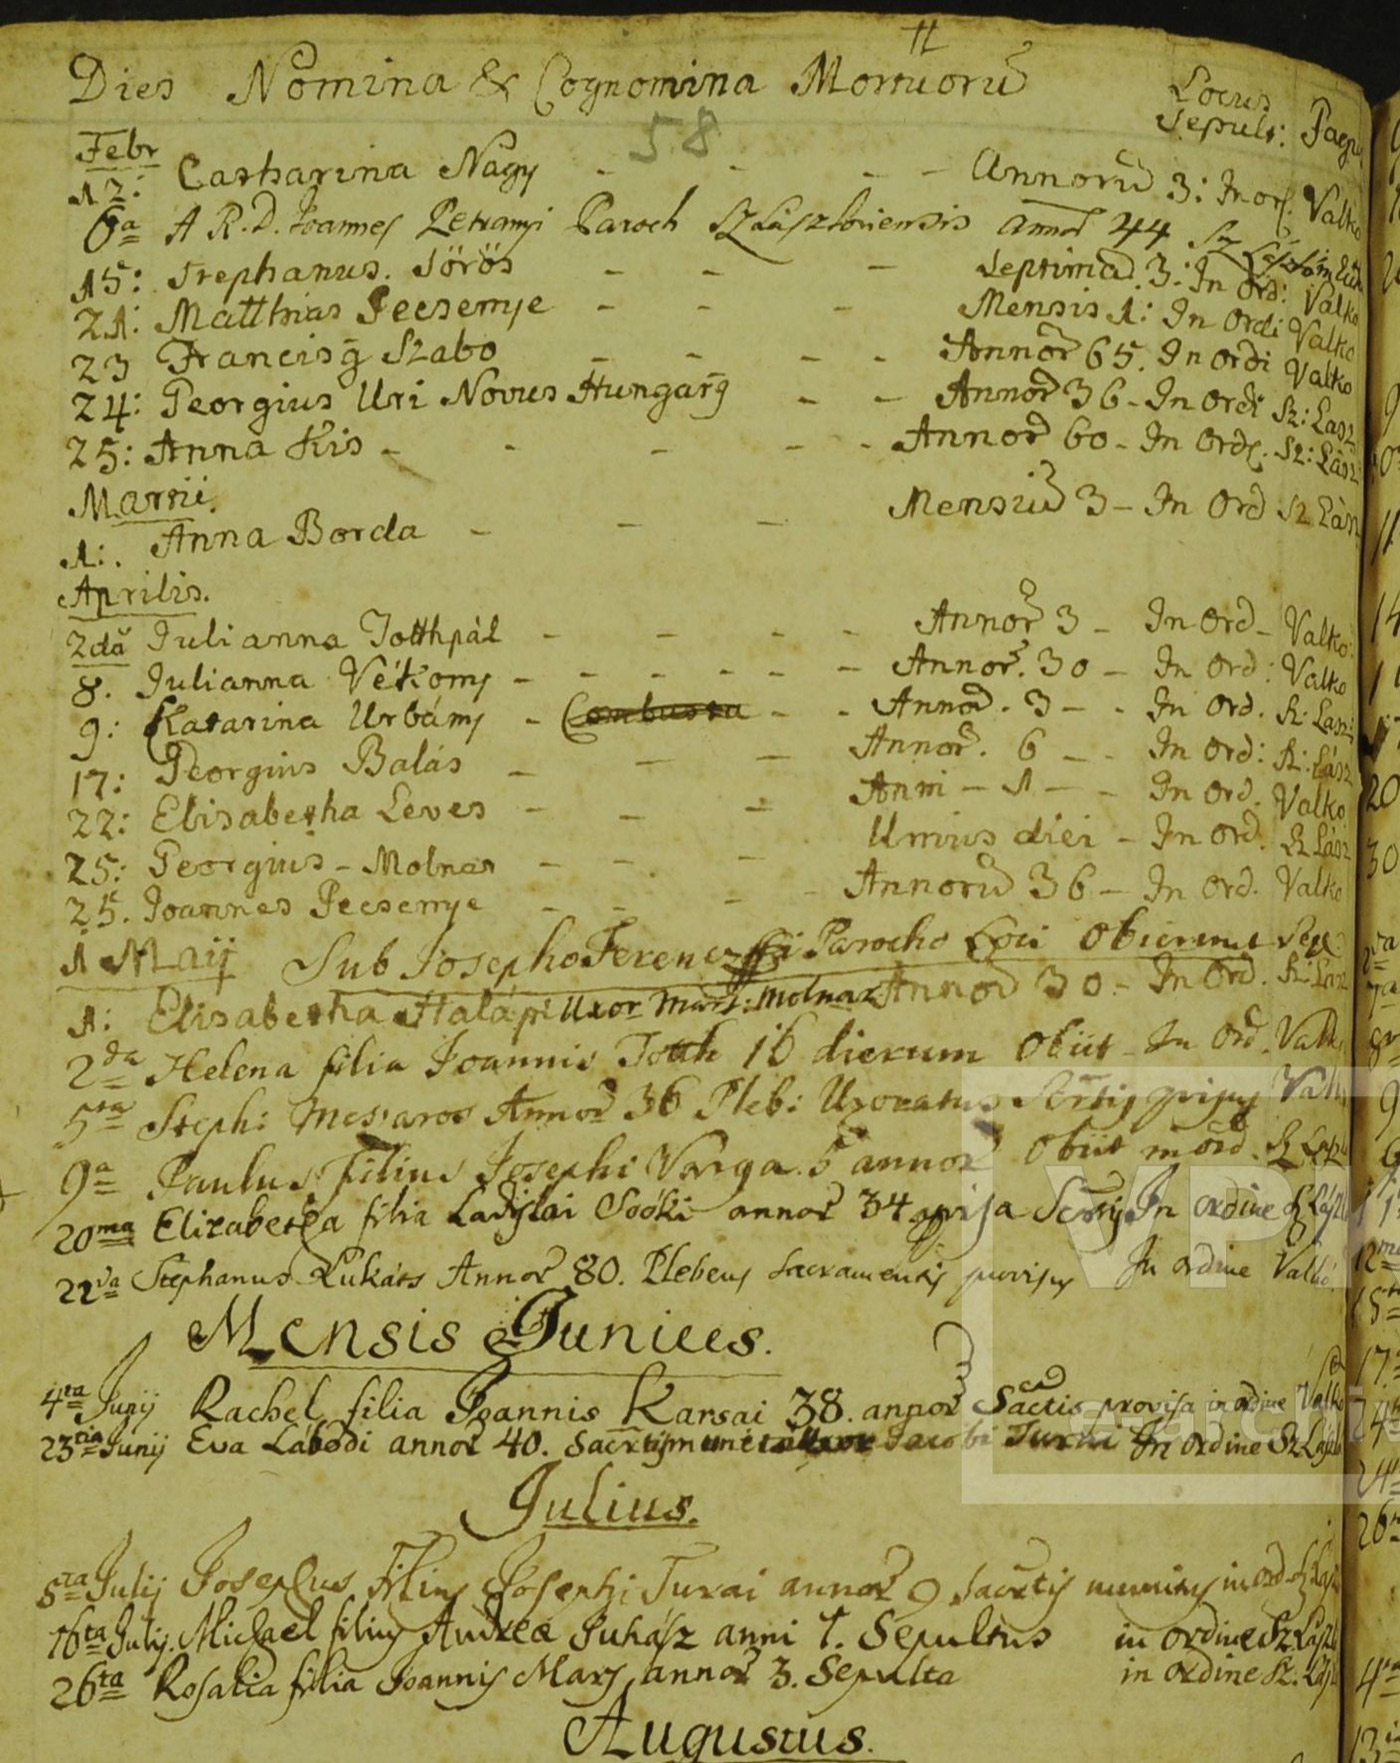 Dies Nomina & Cognomina Mortuorū Locus Sepult: Pagus
58
Febr
12: Catharina Nagy - - - - Annorū 3: In ord: Valko
6a A R. D. Joannes Petranyi Paroch Sz Lászloviensis annor 44
15: Stephanus Sörös - - - Septima. 3: In Ord: Valko
21: Matthias Pecsenye - - - Mensis 1: In Ordi Valko
23 Francisg Szabo - - - - Annor 65. In Ordi Valko
24: Georgius Uri Novus Hungarg - - Annor 36 - In Ordi Sz: Lasz
25: Anna Kis - - - - - Annor 60 - In Ord. Sz: Lász
Martii.
1: Anna Borda - - - Mensiū 3 - In Ord Sz Lász
Aprilis.
2dă Julianna Totthpál - - - - Annor 3 - In Ord - Valko
8. Julianna Vékony - - - - - - Annor. 30 - In Ord: Valko
9: Katarina Urbány - Combusta - - Annor. 3 - - In Ord. Sz: Lasz
17: Georgius Balás - - - Annor. 6 - - In Ord: Sz: Lász
22: Elisabetha Leves - - - Anni - 1 - - In Ord. Valko
25: Georgius - Molnar - - - Unius diei - In Ord. Sz Lász
25. Joannes Pecsenye - - - - Annorū 36 - In Ord. Valko
1 Maij Sub Josepho Ferenczffi Parocho Loci Obierunt Seq:
1: Elisabetha Halápi Uxor Mart: Molnar Annor 30 - In Ord. Sz: Lasz
2da Helena filia Joannis Totth 16 dierum Obiit - In Ord. Valk
5ta Steph: Mesaros Annor 36 Pleb: Uxoratus
9a Paulus Filius Josephi Varga 5 annor Obiit in ord. Sz Lasz
20ma Elizabetha filia Ladislai Soóki annor 34 In ordine Sz Lász
22da Stephanus Lukáts Annor 80. Plebeus Sacramentis provisus In ordine Valko
Mensis Junius.
4ta Junij Rachel filia Joannis Karsai 38. annor Sactis provisa in ordine Valko
23tia Junij Eva Lábodi annor 40. Jacobi Turai In ordine Sz Lász
Julius.
5ta Julij Josephus Filius Josephi Turai annor 9 Sacrtis munitus in ord Sz Lász
16ta Julij. Michael filius Andreæ Juhász anni 1. Sepultus in ordine Sz Lászl
26ta Rosalia filia Joannis Mars annor 3. Sepulta in ordine Sz. Lász
Augustus.